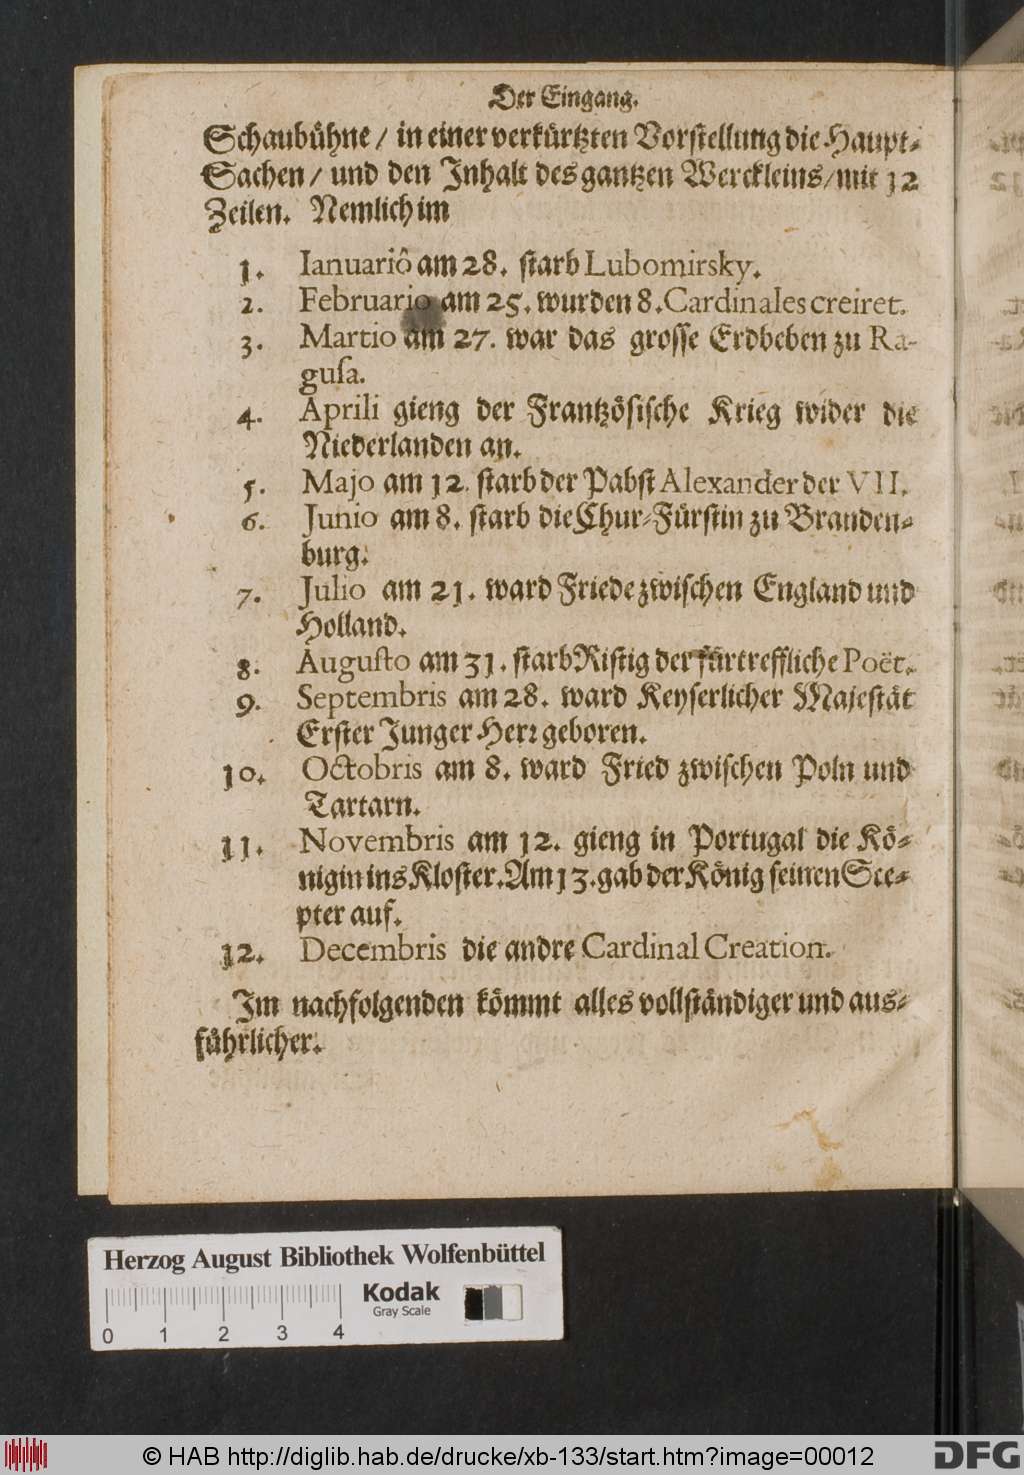 Der Eingang.
Schaubühne / in einer verkürtzten Vorstellung die Haupt-
Sachen / und den Inhalt des gantzen Werckleins / mit 12
Zeilen. Nemlich im
1. Ianuariô am 28. starb Lubomirsky.
2. Februario am 25. wurden 8. Cardinales creiret.
3. Martio am 27. war das grosse Erdbeben zu Ra-
gusa.
4. Aprili gieng der Frantzösische Krieg wider die
Niederlanden an.
5. Majo am 12. starb der Pabst Alexander der VII.
6. Junio am 8. starb die Chur-Fürstin zu Branden-
burg.
7. Julio am 21. ward Friede zwischen England und
Holland.
8. Augusto am 31. starb Ristig der fürtreffliche Poët.
9. Septembris am 28. ward Keyserlicher Majestät
Erster Junger Herr geboren.
10. Octobris am 8. ward Fried zwischen Poln und
Tartarn.
11. Novembris am 12. gieng in Portugal die Kö-
nigin ins Kloster. Am 13. gab der König seinen Sce-
pter auf.
12. Decembris die andre Cardinal Creation.
Im nachfolgenden kömmt alles vollständiger und aus-
führlicher.
Herzog August Bibliothek Wolfenbüttel
Kodak
Gray Scale
0 1 2 3 4
© HAB http://diglib.hab.de/drucke/xb-133/start.htm?image=00012
DFG